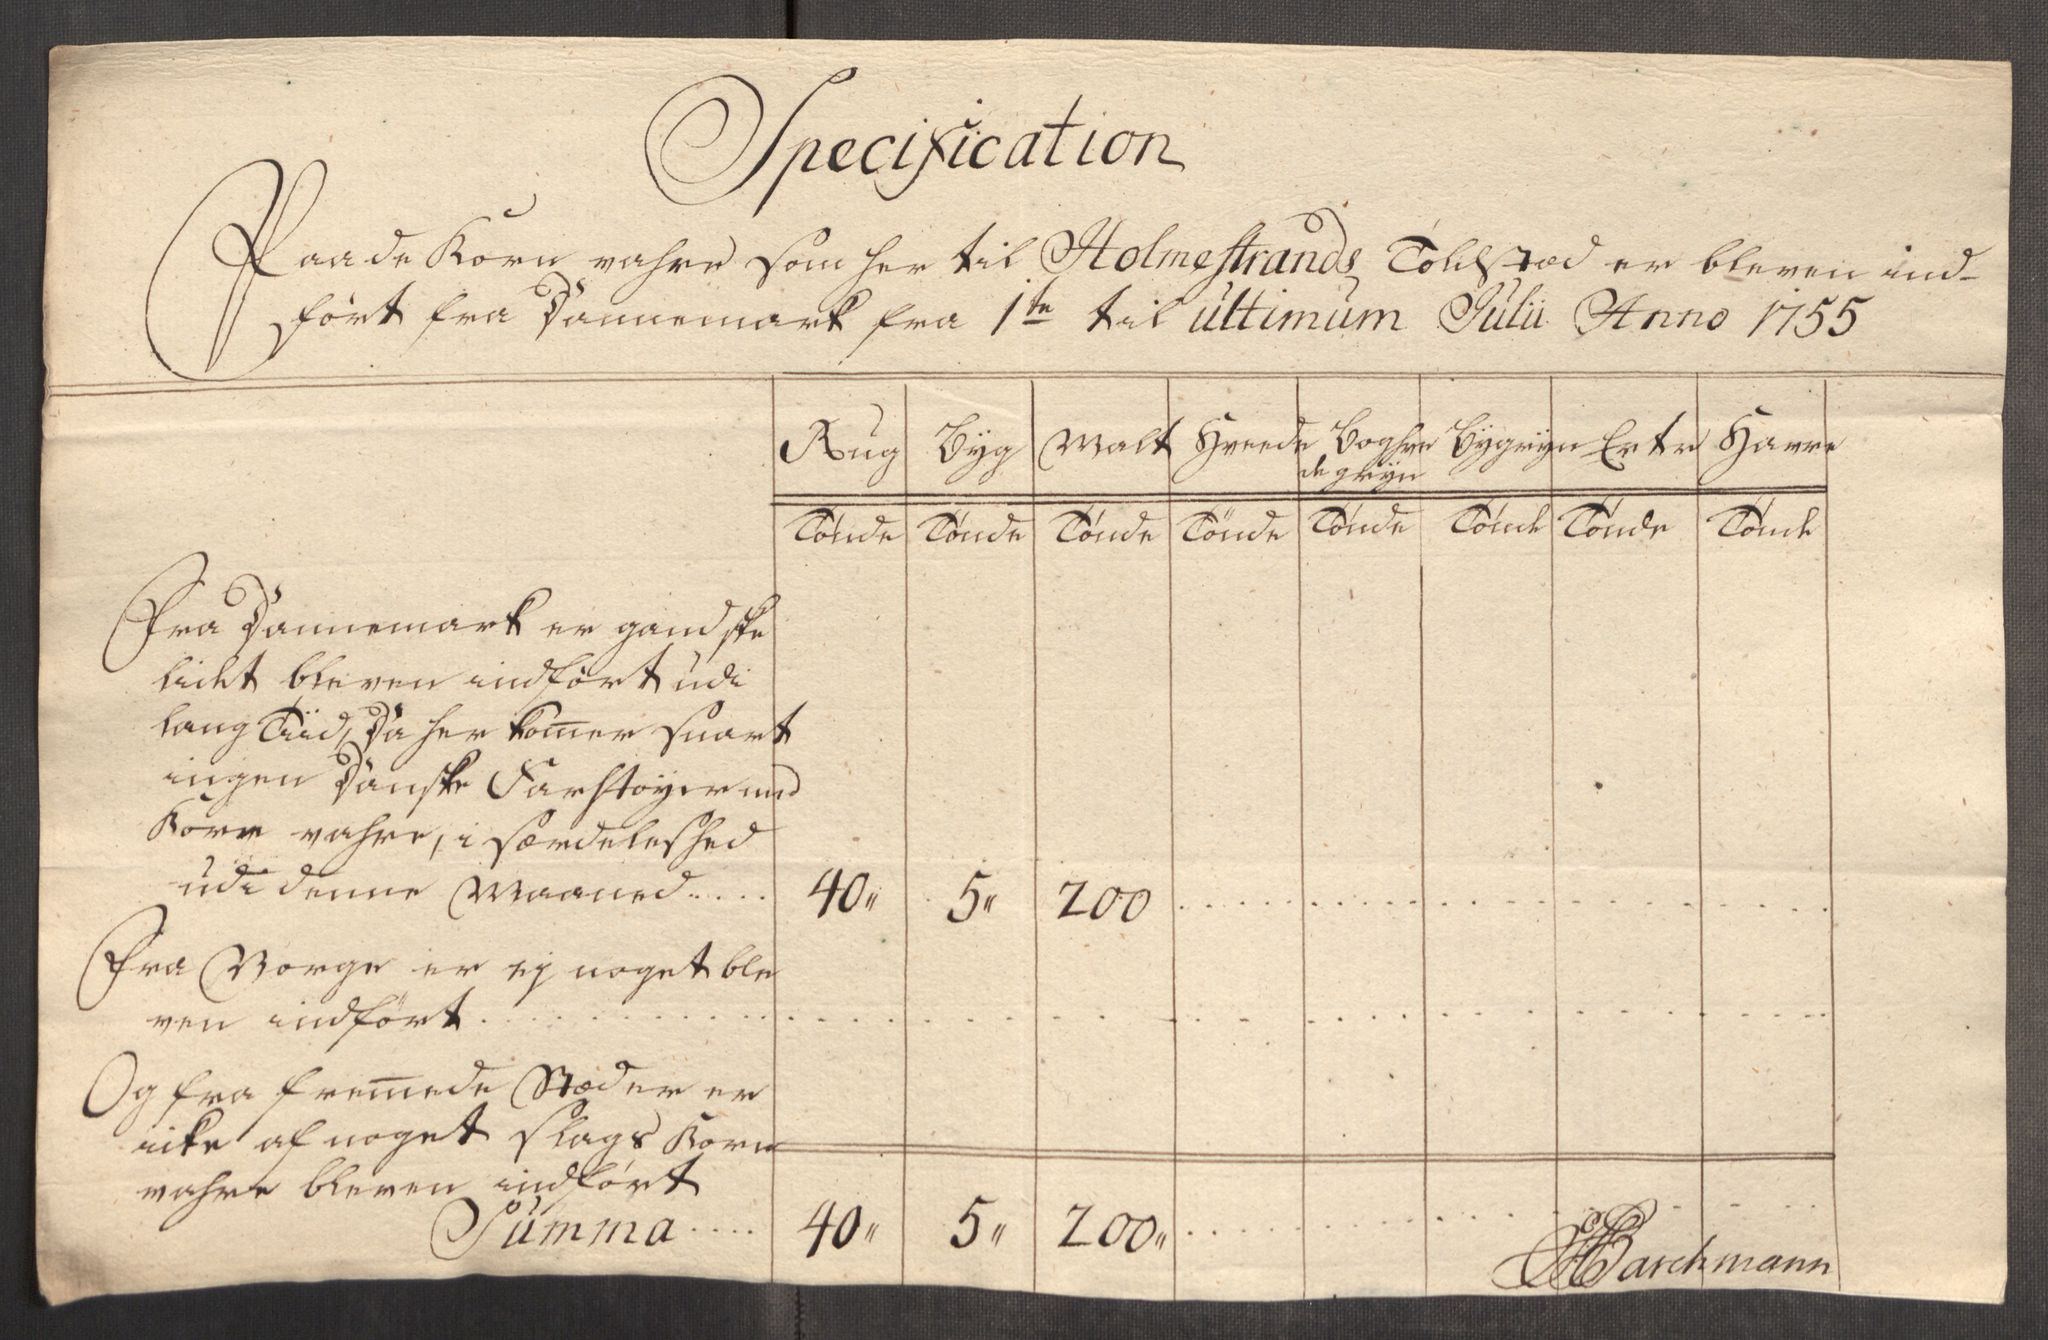 Specification
Paa de Korn vahre som her til Holmestrands Toldsted er bleven ind-
ført fra Dannemark fra 1te til ultimum Julii Anno 1755
Rug Byg Malt Hveede Boghve Bygryn Erter Havre
de gryn
Tønde Tønde Tønde Tønde Tønde Tønde Tønde Tønde
Fra Dannemark er gandske
lidet bleven indført udi
lang Tiid, Da her kom̅er snart
ingen Danske Fartøyer med
Korn vahre, i særdeleshed
udi denne Maaned..... 40" 5" 200
Fra Norge er ej noget ble
ven indført
Og fra frem̅ede Stæder er
icke af noget slags Korn
vahre bleven indført
Summa.... 40" 5" 200"
Barchmann